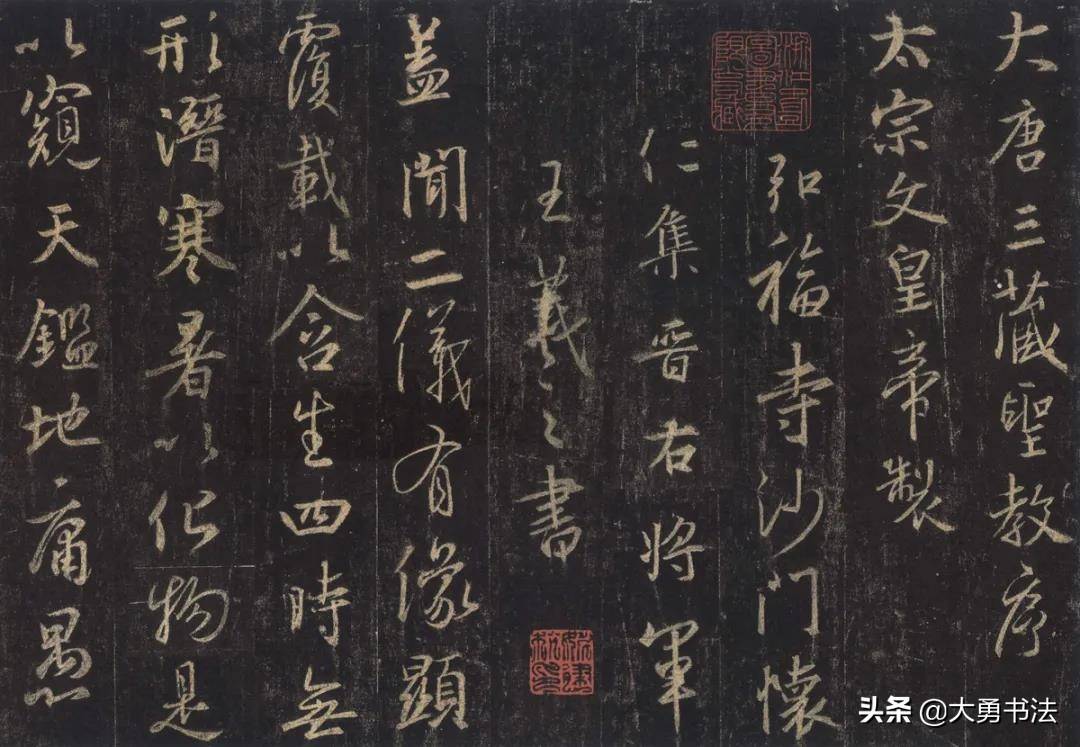 大唐三藏聖教序
太宗文皇帝製
弘福寺沙門懷
仁集晋右将軍
王羲之書
蓋聞二儀有像顯
覆載以含生四時無
形潛寒暑以化物是
以窺天鑑地庸愚
头条 @大勇书法